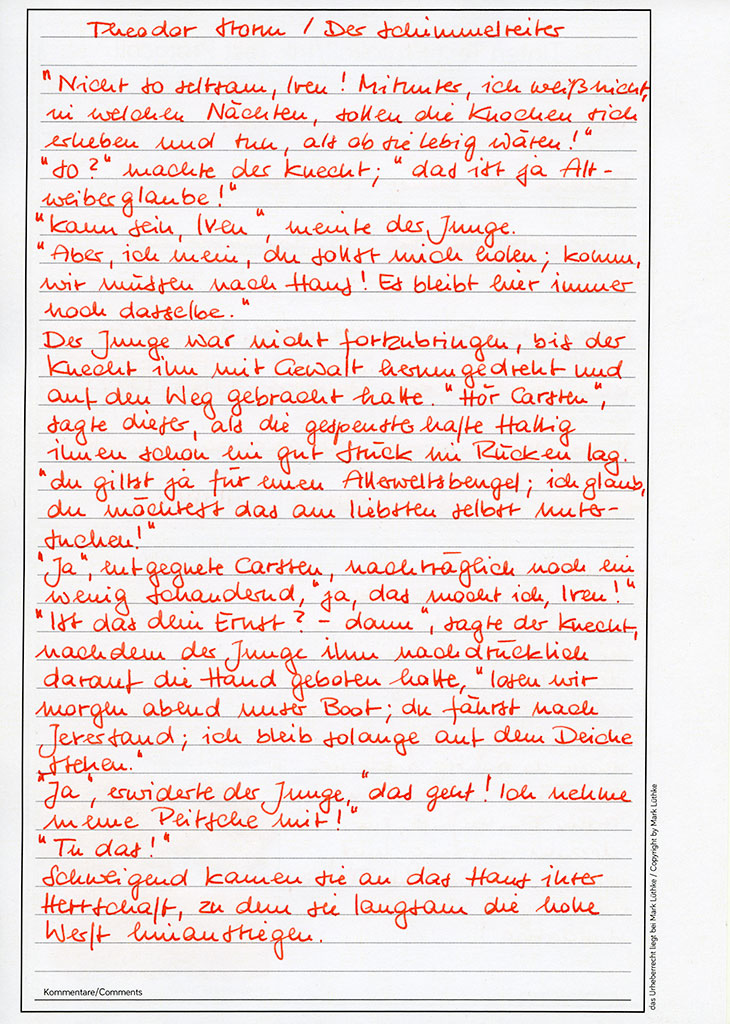 Theodor Storm / Der Schimmelreiter
"Nicht so seltsam, Iven! Mitunter, ich weiß nicht,
in welchen Nächten, sollen die Knochen sich
erheben und tun, als ob sie lebig wären!"
"So?" machte der Knecht; "das ist ja Alt-
weiberglaube!"
"Kann sein, Iven", meinte der Junge.
"Aber, ich mein, du sollst mich holen; komm,
wir müssen nach Haus! Es bleibt hier immer
noch dasselbe."
Der Junge war nicht fortzubringen, bis der
Knecht ihn mit Gewalt herumgedreht und
auf den Weg gebracht hatte. "Hör Carsten",
sagte dieser, als die gespensterhafte Hallig
ihnen schon ein gut Stück im Rücken lag.
"du giltst ja für einen Allerweltsbengel; ich glaub,
du möchtest das am liebsten selbst unter-
suchen!"
"Ja", entgegnete Carsten, nachträglich noch ein
wenig schaudernd, "ja, das möcht ich, Iven!"
"Ist das dein Ernst? - dann", sagte der Knecht,
nachdem der Junge ihm nachdrücklich
darauf die Hand geboten hatte, "lösen wir
morgen abend unser Boot; du fährst nach
Jeversand; ich bleib solange auf dem Deiche
stehen."
"Ja", erwiderte der Junge, "das geht! Ich nehme
meine Peitsche mit!"
"Tu das!"
Schweigend kamen sie an das Haus ihrer
Herrschaft, zu dem sie langsam die hohe
Werft hinanstiegen.
Kommentare/Comments
das Urheberrecht liegt bei Mark Lüthke / Copyright by Mark Lüthke